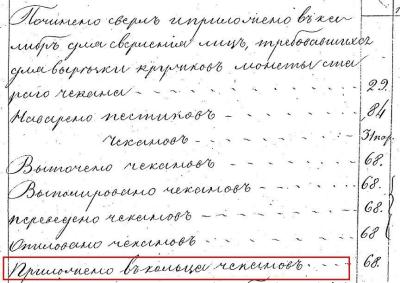 Починено сверлъ и приложено въ ка
либръ для сверления лицъ, требовавшихся
для вырезки кружковъ монеты ста
раго чекана 29.
Наварено пестиковъ 84
чекановъ 31 пар.
Выточено чекановъ 68.
Выполировано чекановъ 68.
переведено чекановъ 68.
Отпиловано чекановъ 68
Приложено въ кольца чекановъ 68.